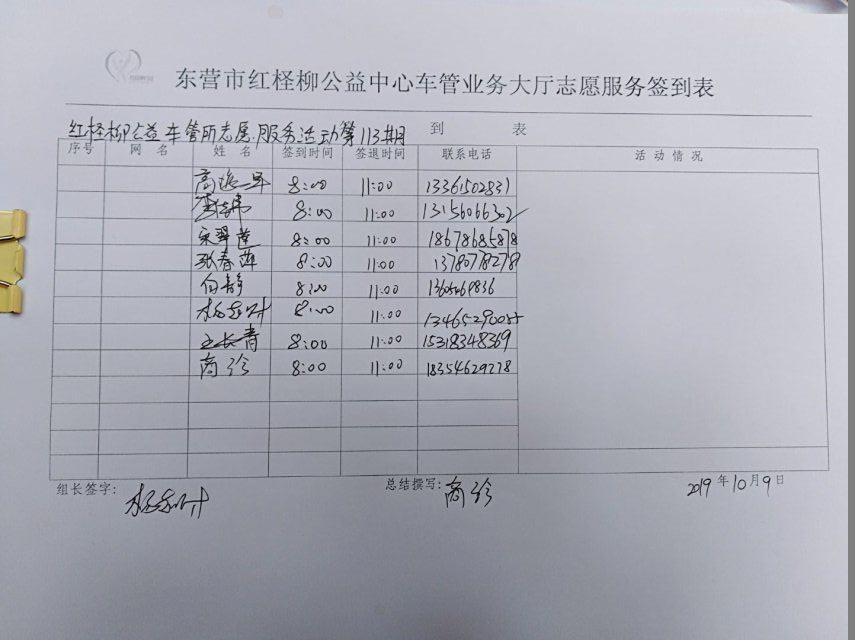 东营市红柽柳公益中心车管业务大厅志愿服务签到表
红柽柳公益车管所志愿服务活动第113期 到 表
序号 网名 姓名 签到时间 签退时间 联系电话 活动情况
8:00 11:00 13361502831
8:00 11:00 13156066302
宋翠莲 8:00 11:00 18678685878
张春萍 8:00 11:00 13780778278
向静 8:00 11:00
8:00 11:00
王长青 8:00 11:00 15318348369
商珍 8:00 11:00 18354629278
组长签字: 总结撰写: 商珍 2019年10月9日